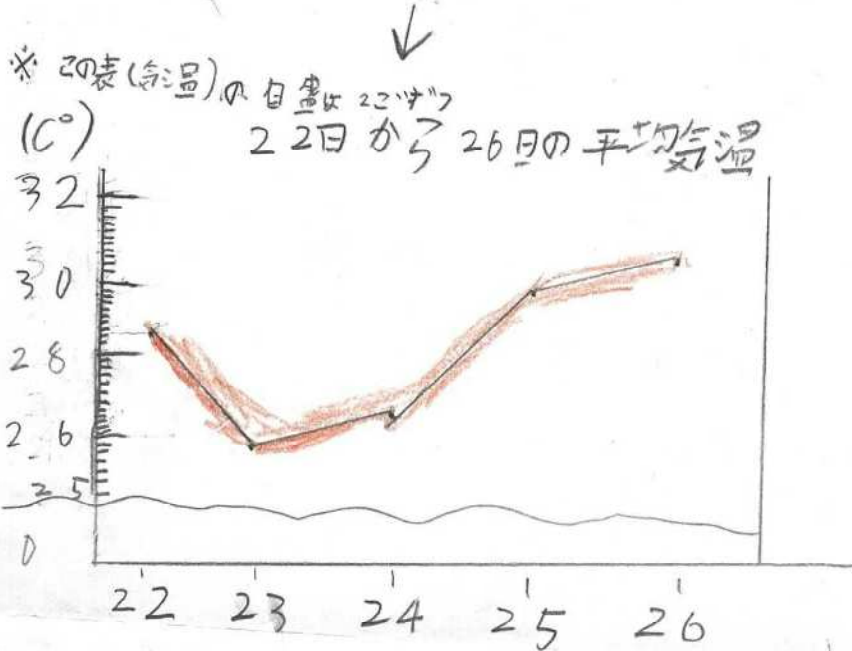 ※ この表(気温)の目盛は 2こずつ
(C°)
22日から26日の平均気温
32
30
28
26
25
0
22 23 24 25 26